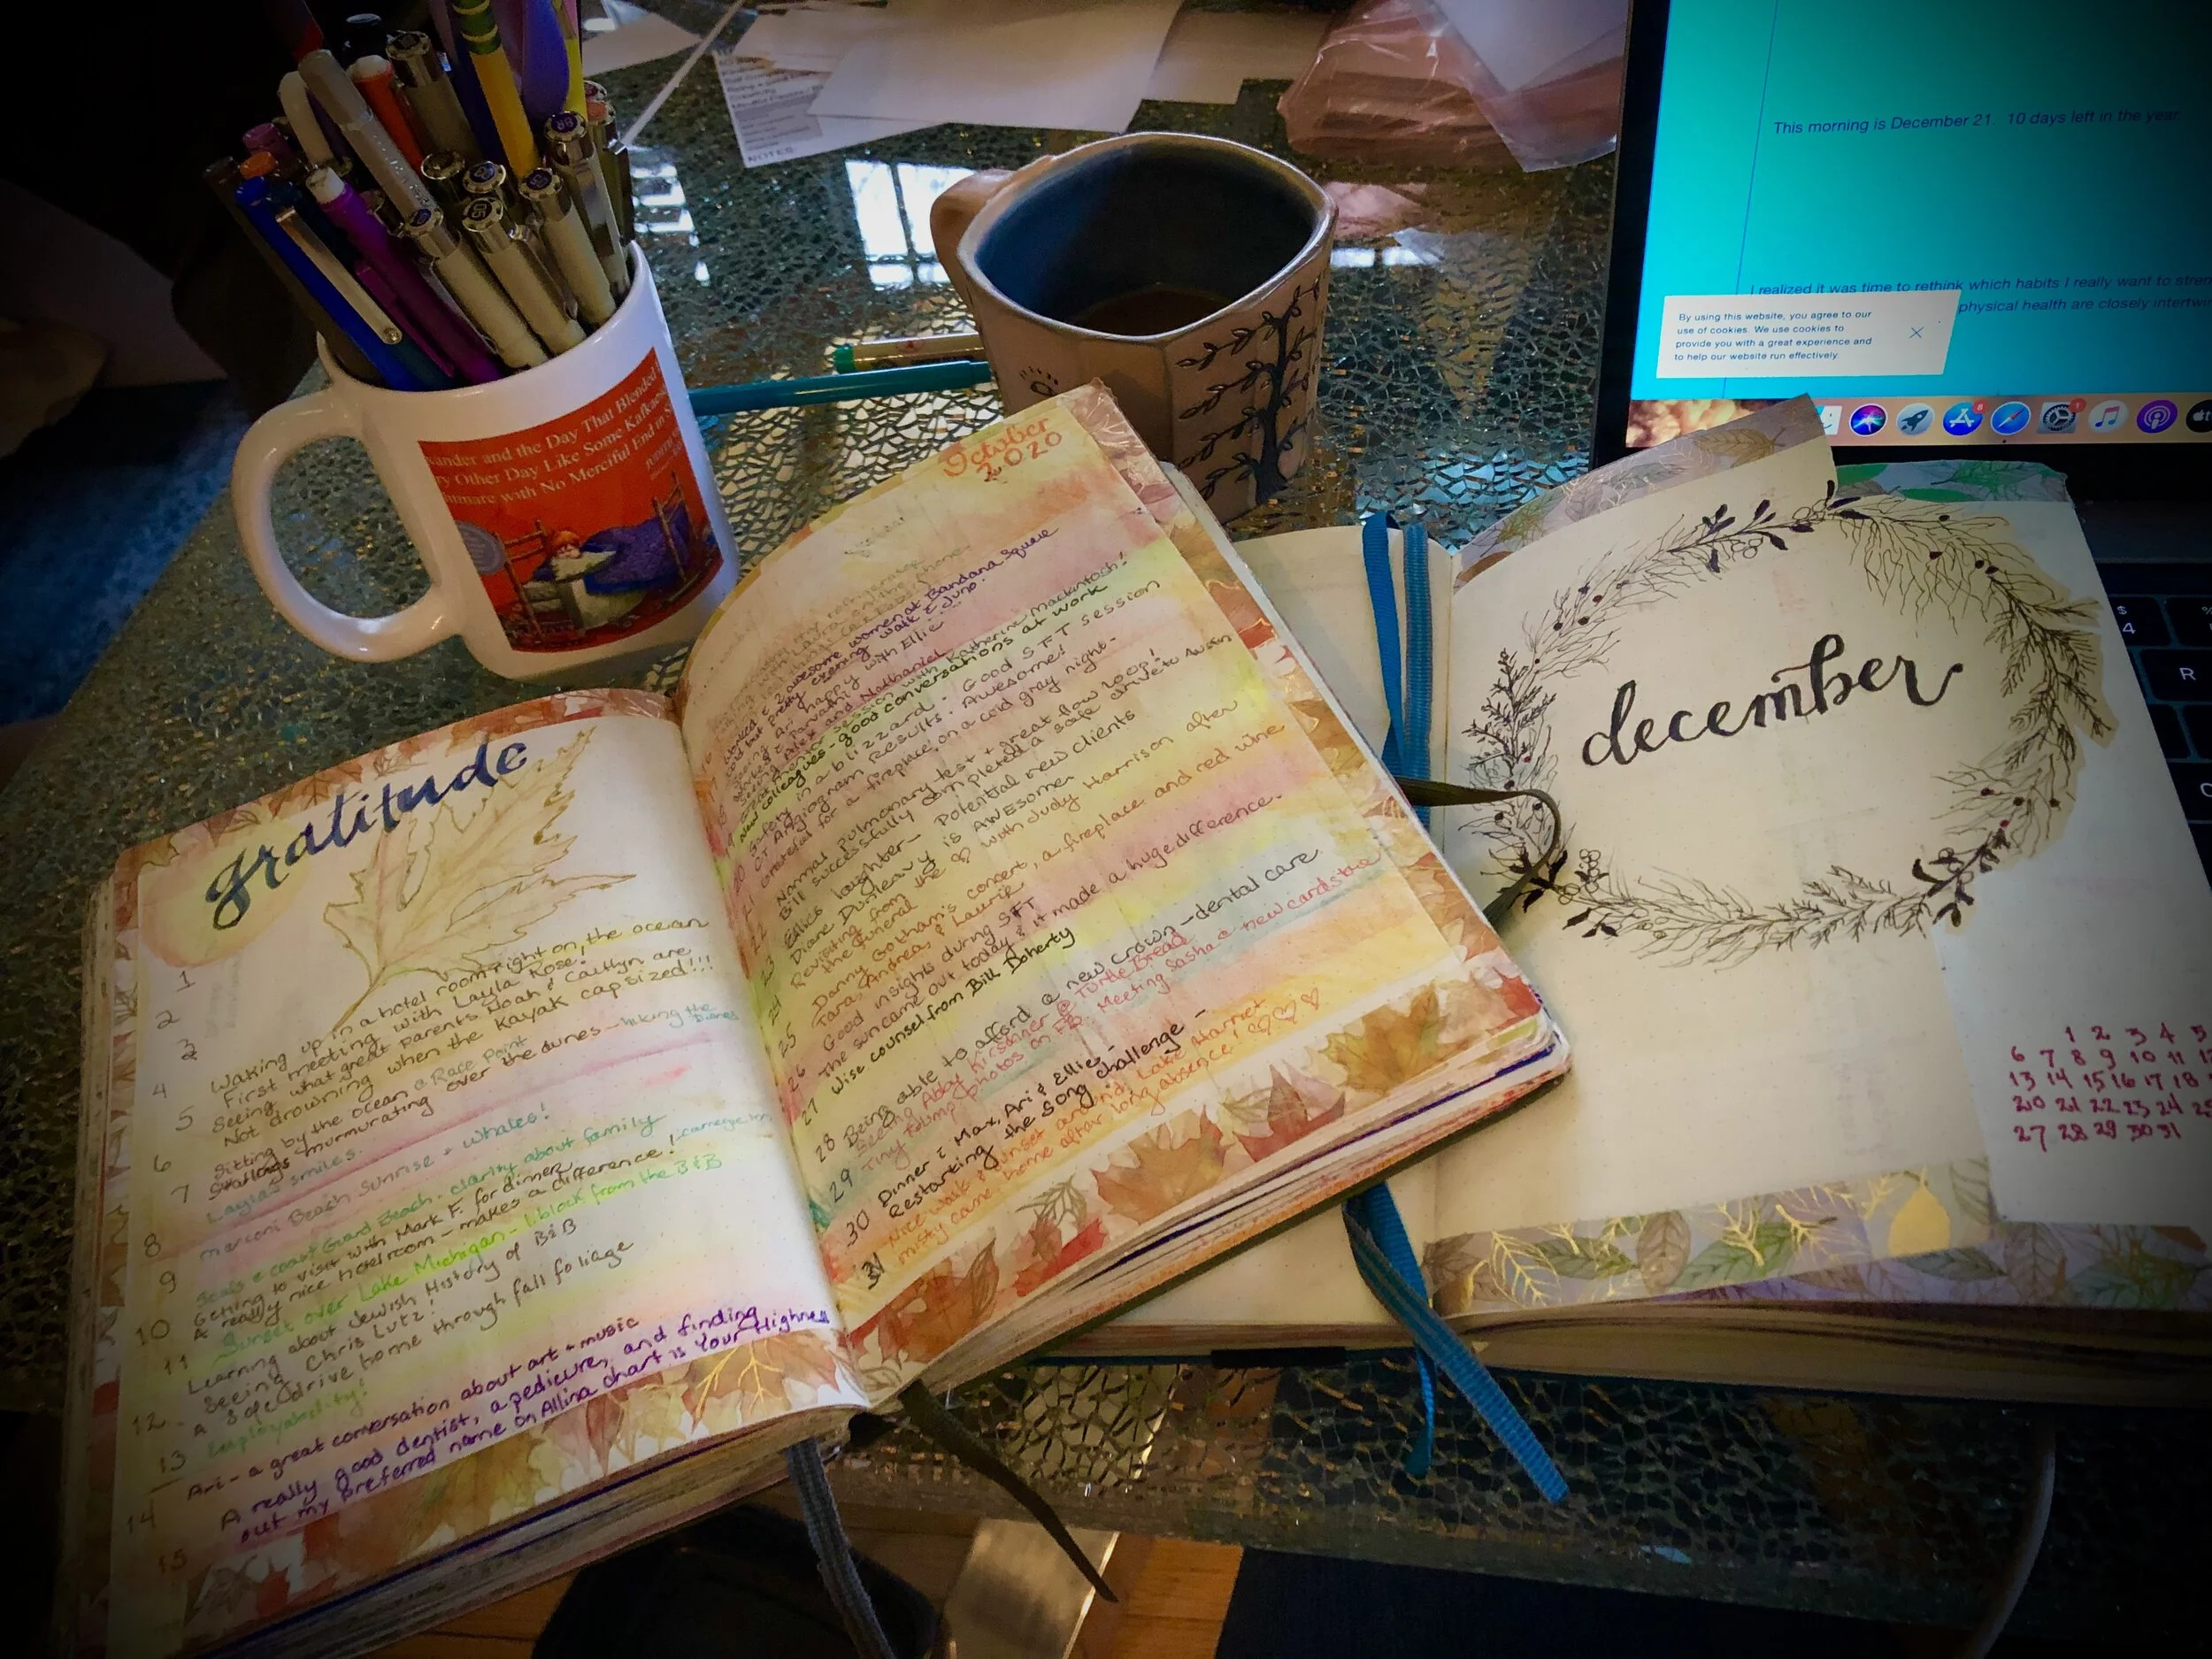 This morning is December 21. 10 days left in the year.
I realized it was time to rethink which habits I really want to stren
physical health are closely intertwi
By using this website, you agree to our
use of cookies. We use cookies to
provide you with a great experience and
to help our website run effectively.
NOTES
ander and the Day That Blended
Other Day Like Some Kafkaesque
with No Merciful End in S
gratitude
1
2
3
4
5
6
7
8
9
10
11
12
13
14
15
Waking up in a hotel room right on the ocean
First meeting with Layla Rose!
Seeing what great parents Noah & Caitlyn are
Not drowning when the kayak capsized!!!
Sitting by the ocean @ Race Point
Starlings murmurating over the dunes - hiking the Dunes
Layla's smiles.
Marconi Beach Sunrise + whales!
Seals @ Coast Guard Beach. clarity about family
Getting to visit with Mark F. for dinner
A really nice hotel room - makes a difference!
Sunset over Lake Michigan - 1 block from the B&B
Learning about Jewish History of B&B
Seeing Chris Lutz!
A safe drive home through fall foliage
Employability!
Ari - a great conversation about art + music
A really good dentist, a pedicure, and finding
out my preferred name on Allina chart is Your Highness
October
2020
2 awesome women at Bandana Square
evening walk Juno.
happy with Ellie
and Nathaniel
session with Katherine Mackintosh!
New colleagues - good conversations at work
Safety in a blizzard. Good SFT session
CT Angiogram results. Awesome!
Grateful for a fireplace on a cold gray night.
Normal pulmonary test + great flow loop!
Bill successfully completed a safe drive to Austin
Ellie's laughter - Potential new clients
Diane Dunleavy is AWEsome
Revisiting from the with Judy Harrison after
the funeral
Danny Gotham's concert, a fireplace and red wine
Tara, Andrea, & Laurie
Good insights during SFT
The sun came out today & it made a huge difference.
Wise counsel from Bill Doherty
Being able to afford a new crown - dental care
Seeing Abby Kirschner @ Turtle Bread
Tiny photos on FB. Meeting Sasha @ new cardstore
Dinner Max, Ari & Ellie -
Restarting the song challenge -
Nice walk & sunset around Lake Harriet
Misty came home after long absence!
20
21
22
23
24
25
26
27
28
29
30
31
december
1 2 3 4 5
6 7 8 9 10 11 12
13 14 15 16 17 18
20 21 22 23 24 25
27 28 29 30 31
$
4
R